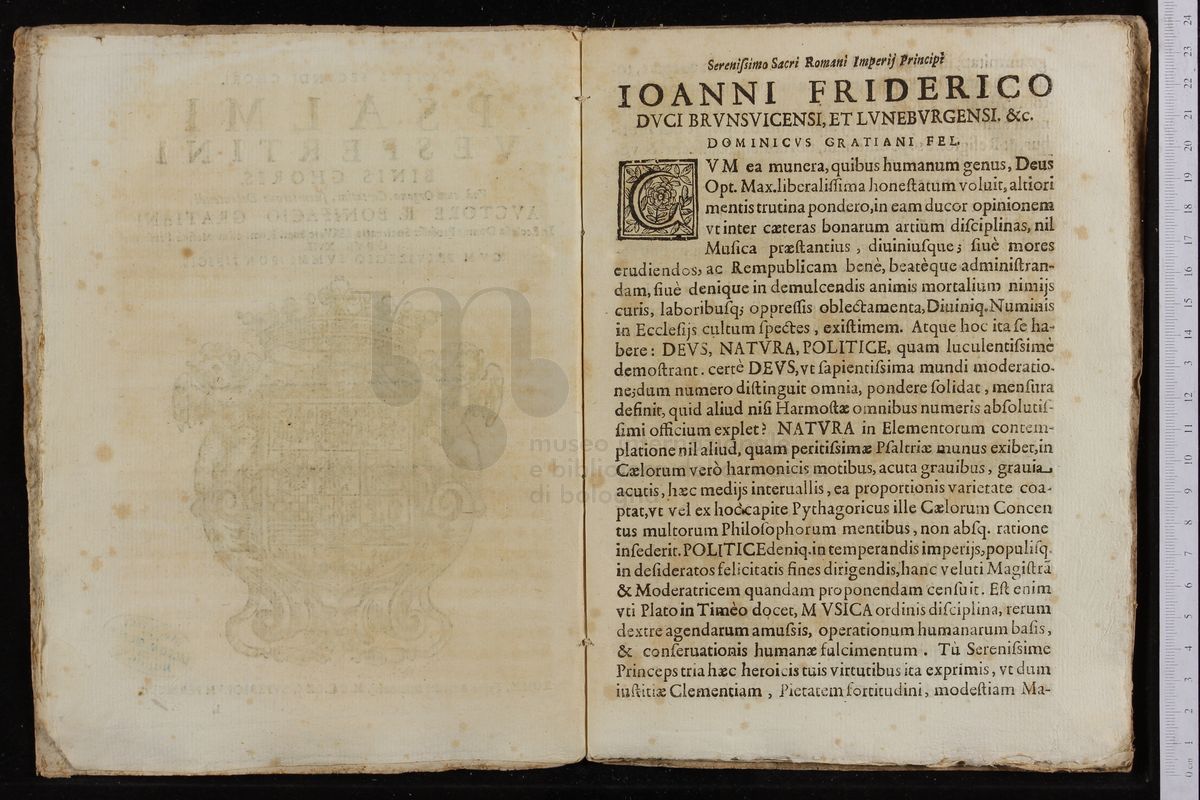 Serenissimo Sacri Romani Imperij Principi
IOANNI FRIDERICO
DVCI BRVNSVICENSI, ET LVNEBVRGENSI. &c.
DOMINICVS GRATIANI FEL.
CVM ea munera, quibus humanum genus, Deus
Opt. Max. liberalissima honestatum voluit, altiori
mentis trutina pondero, in eam ducor opinionem
vt inter cæteras bonarum artium disciplinas, nil
Musica præstantius, diuiniusque; siuè mores
erudiendos, ac Rempublicam benè, beatèque administran-
dam, siuè denique in demulcendis animis mortalium nimijs
curis, laboribusq; oppressis oblectamenta, Diuiniq. Numinis
in Ecclesijs cultum spectes, existimem. Atque hoc ita se ha-
bere: DEVS, NATVRA, POLITICE, quam luculentissimè
demostrant. certè DEVS, vt sapientissima mundi moderatio-
ne; dum numero distinguit omnia, pondere solidat, mensura
definit, quid aliud nisi Harmostæ omnibus numeris absolutis-
simi officium explet? NATVRA in Elementorum contem-
platione nil aliud, quam peritissimæ Psaltriæ munus exibet, in
Cælorum verò harmonicis motibus, acuta grauibus, grauia
acutis, hæc medijs interuallis, ea proportionis varietate coa-
ptat, vt vel ex hoc capite Pythagoricus ille Cælorum Concen
tus multorum Philosophorum mentibus, non absq. ratione
insederit. POLITICE deniq. in temperandis imperijs, populisq.
in desideratos felicitatis fines dirigendis, hanc veluti Magistrã
& Moderatricem quandam proponendam censuit. Est enim
vti Plato in Timèo docet, MVSICA ordinis disciplina, rerum
dextre agendarum amussis, operationum humanarum basis,
& conseruationis humanæ fulcimentum. Tù Serenissime
Princeps tria hæc heroicis tuis virtutibus ita exprimis, vt dum
iustitiæ Clementiam, Pietatem fortitudini, modestiam Ma-
museo internazionale
e biblio
di bologna